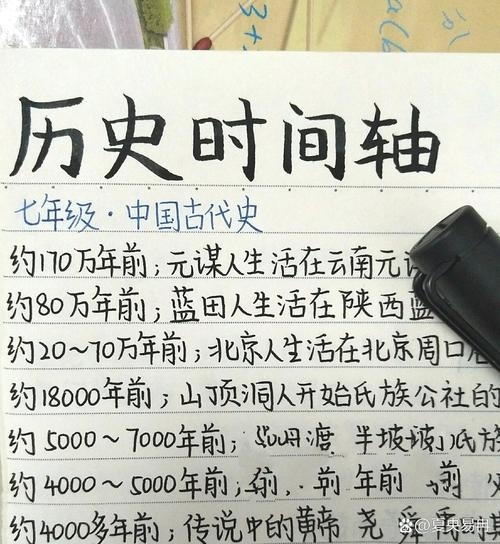 3+
历史时间轴
七年级·中国古代史
约170万年前；元谋人生活在云南元
约80万年前；蓝田人生活在陕西蓝
约20～70万年前；北京人生活在北京周口
约18000年前；山顶洞人开始氏族公社的
约5000～7000年前；渡 半坡 氏族
约4000～5000年前, 前 年前 前
约4000多年前；传说中的黄帝 尧
夏央易冉